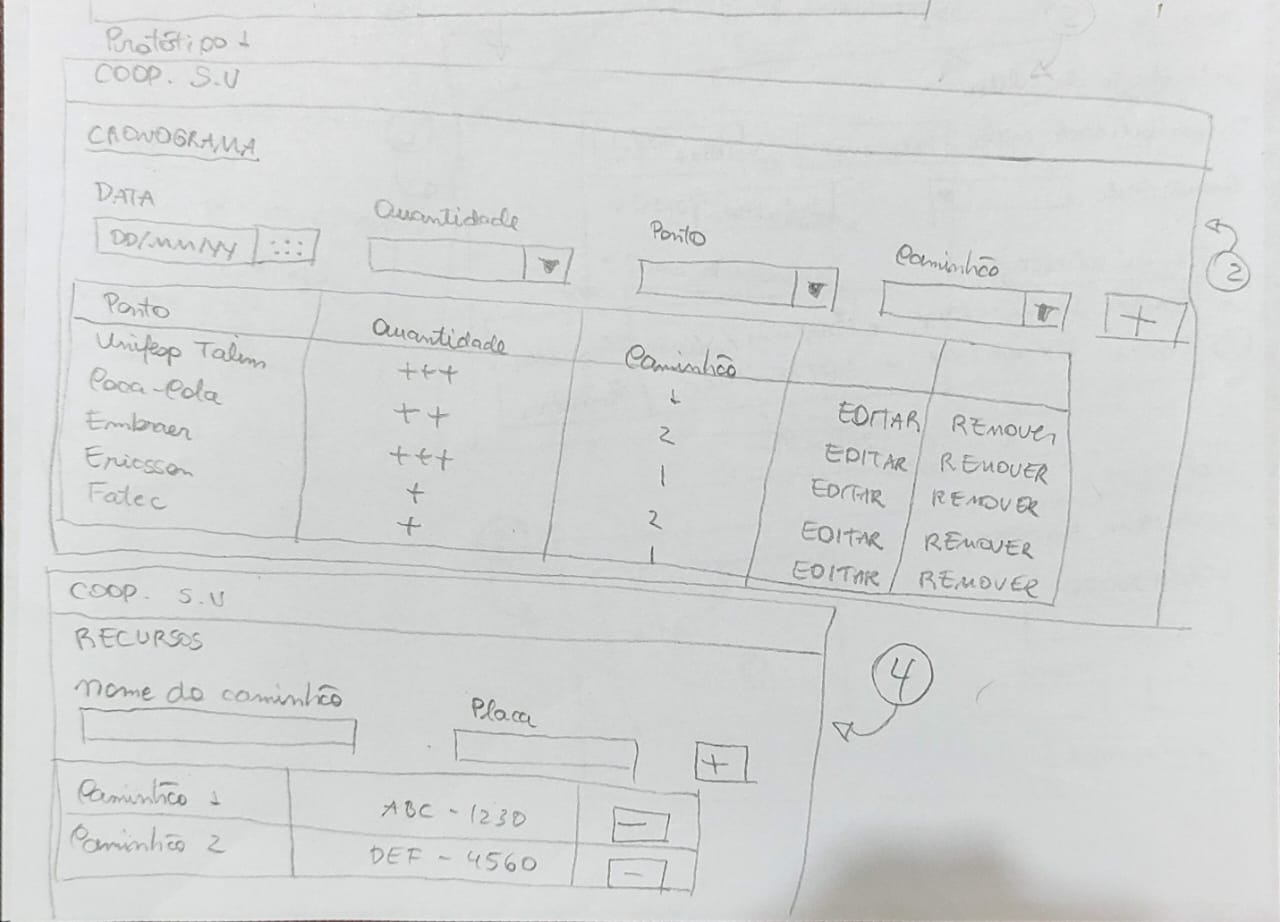 Protótipo 1
COOP. S.U
CRONOGRAMA
DATA Quantidade Ponto Caminhão
DD/MM/YY
+
2
Ponto Quantidade Caminhão
Unifesp Talim +++ 1 EDITAR REMOVER
Coca-Cola ++ 2 EDITAR REMOVER
Embraer +++ 1 EDITAR REMOVER
Ericsson + 2 EDITAR REMOVER
Fatec + 1 EDITAR REMOVER
COOP. S.U
RECURSOS
4
nome do caminhão Placa
+
Caminhão 1 ABC - 1230 -
Caminhão 2 DEF - 4560 -